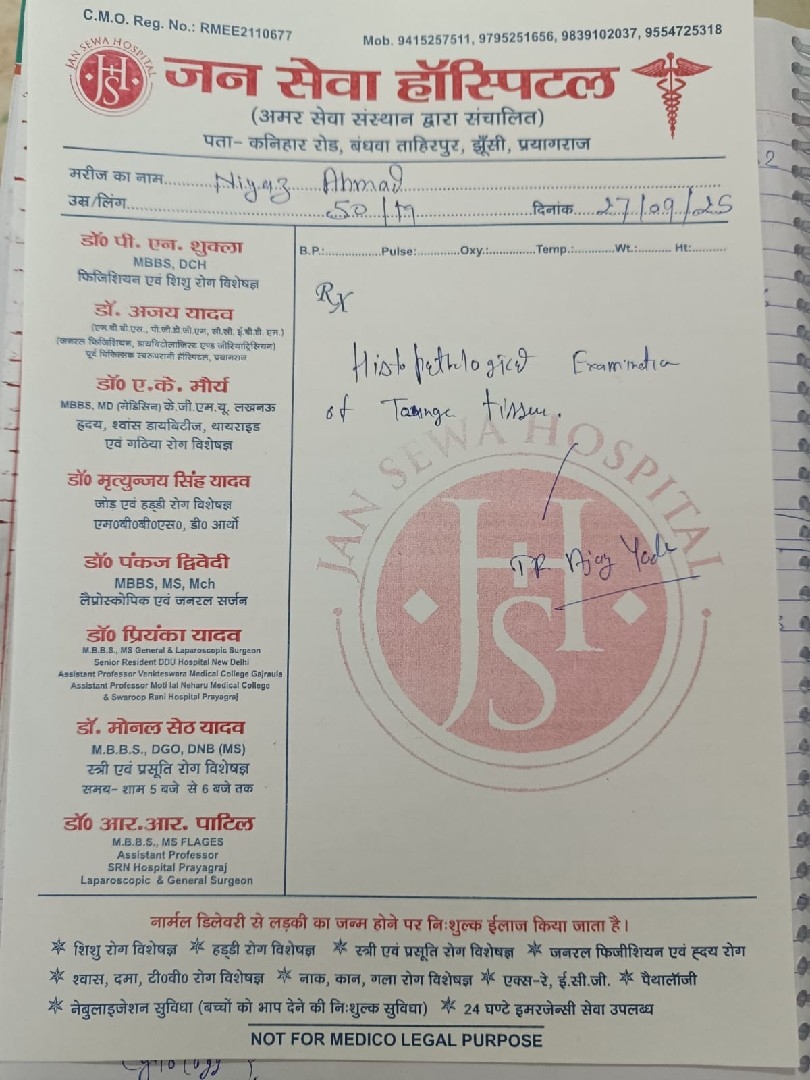 C.M.O. Reg. No.: RMEE2110677
Mob. 9415257511, 9795251656, 9839102037, 9554725318
JAN SEWA HOSPITAL
JHSI
जन सेवा हॉस्पिटल
(अमर सेवा संस्थान द्वारा संचालित)
पता- कनिहार रोड, बंधवा ताहिरपुर, झूँसी, प्रयागराज
मरीज का नाम.....Niyaz Ahmad
उम्र/लिंग.....50/M.....दिनांक.....27/09/25
B.P.:.....Pulse:.....Oxy.:.....Temp.:.....Wt.:.....Ht:.....
Rx
Histopathological Examination
of Tounge tissue.
DR Ajay Yadav
JAN SEWA HOSPITAL
डॉ० पी. एन. शुक्ला
MBBS, DCH
फिजिशियन एवं शिशु रोग विशेषज्ञ
डॉ. अजय यादव
(एम.बी.बी.एस., पी.जी.डी.जी.एम, सी.सी. ई.बी.डी. एम.)
(जनरल फिजिशियन, डायबिटोलाजिस्ट एण्ड जीरियाट्रिशियन)
पूर्व चिकित्सक स्वरूपरानी हॉस्पिटल, प्रयागराज
डॉ० ए.के. मौर्य
MBBS, MD (मेडिसिन) के.जी.एम.यू. लखनऊ
हृदय, श्वांस डायबिटीज, थायराइड
एवं गठिया रोग विशेषज्ञ
डॉ० मृत्युन्जय सिंह यादव
जोड एवं हड्डी रोग विशेषज्ञ
एम०बी०बी०एस०, डी० आर्थो
डॉ० पंकज द्विवेदी
MBBS, MS, Mch
लैप्रोस्कोपिक एवं जनरल सर्जन
डॉ० प्रियंका यादव
M.B.B.S., MS General & Laparoscopic Surgeon
Senior Resident DDU Hospital New Delhi
Assistant Professor Venkteswara Medical College Gajraula
Assistant Professor Moti lal Neharu Medical College
& Swaroop Rani Hospital Prayagraj
डॉ. मोनल सेठ यादव
M.B.B.S., DGO, DNB (MS)
स्त्री एवं प्रसूति रोग विशेषज्ञ
समय- शाम 5 बजे से 6 बजे तक
डॉ० आर.आर. पाटिल
M.B.B.S., MS FLAGES
Assistant Professor
SRN Hospital Prayagraj
Laparoscopic & General Surgeon
नार्मल डिलेवरी से लड़की का जन्म होने पर निःशुल्क ईलाज किया जाता है।
शिशु रोग विशेषज्ञ हड्डी रोग विशेषज्ञ स्त्री एवं प्रसूति रोग विशेषज्ञ जनरल फिजीशियन एवं ह्दय रोग
श्वास, दमा, टी०वी० रोग विशेषज्ञ नाक, कान, गला रोग विशेषज्ञ एक्स-रे, ई.सी.जी. पैथालॉजी
नेबुलाइजेशन सुविधा (बच्चों को भाप देने की निःशुल्क सुविधा) 24 घण्टे इमरजेन्सी सेवा उपलब्ध
NOT FOR MEDICO LEGAL PURPOSE